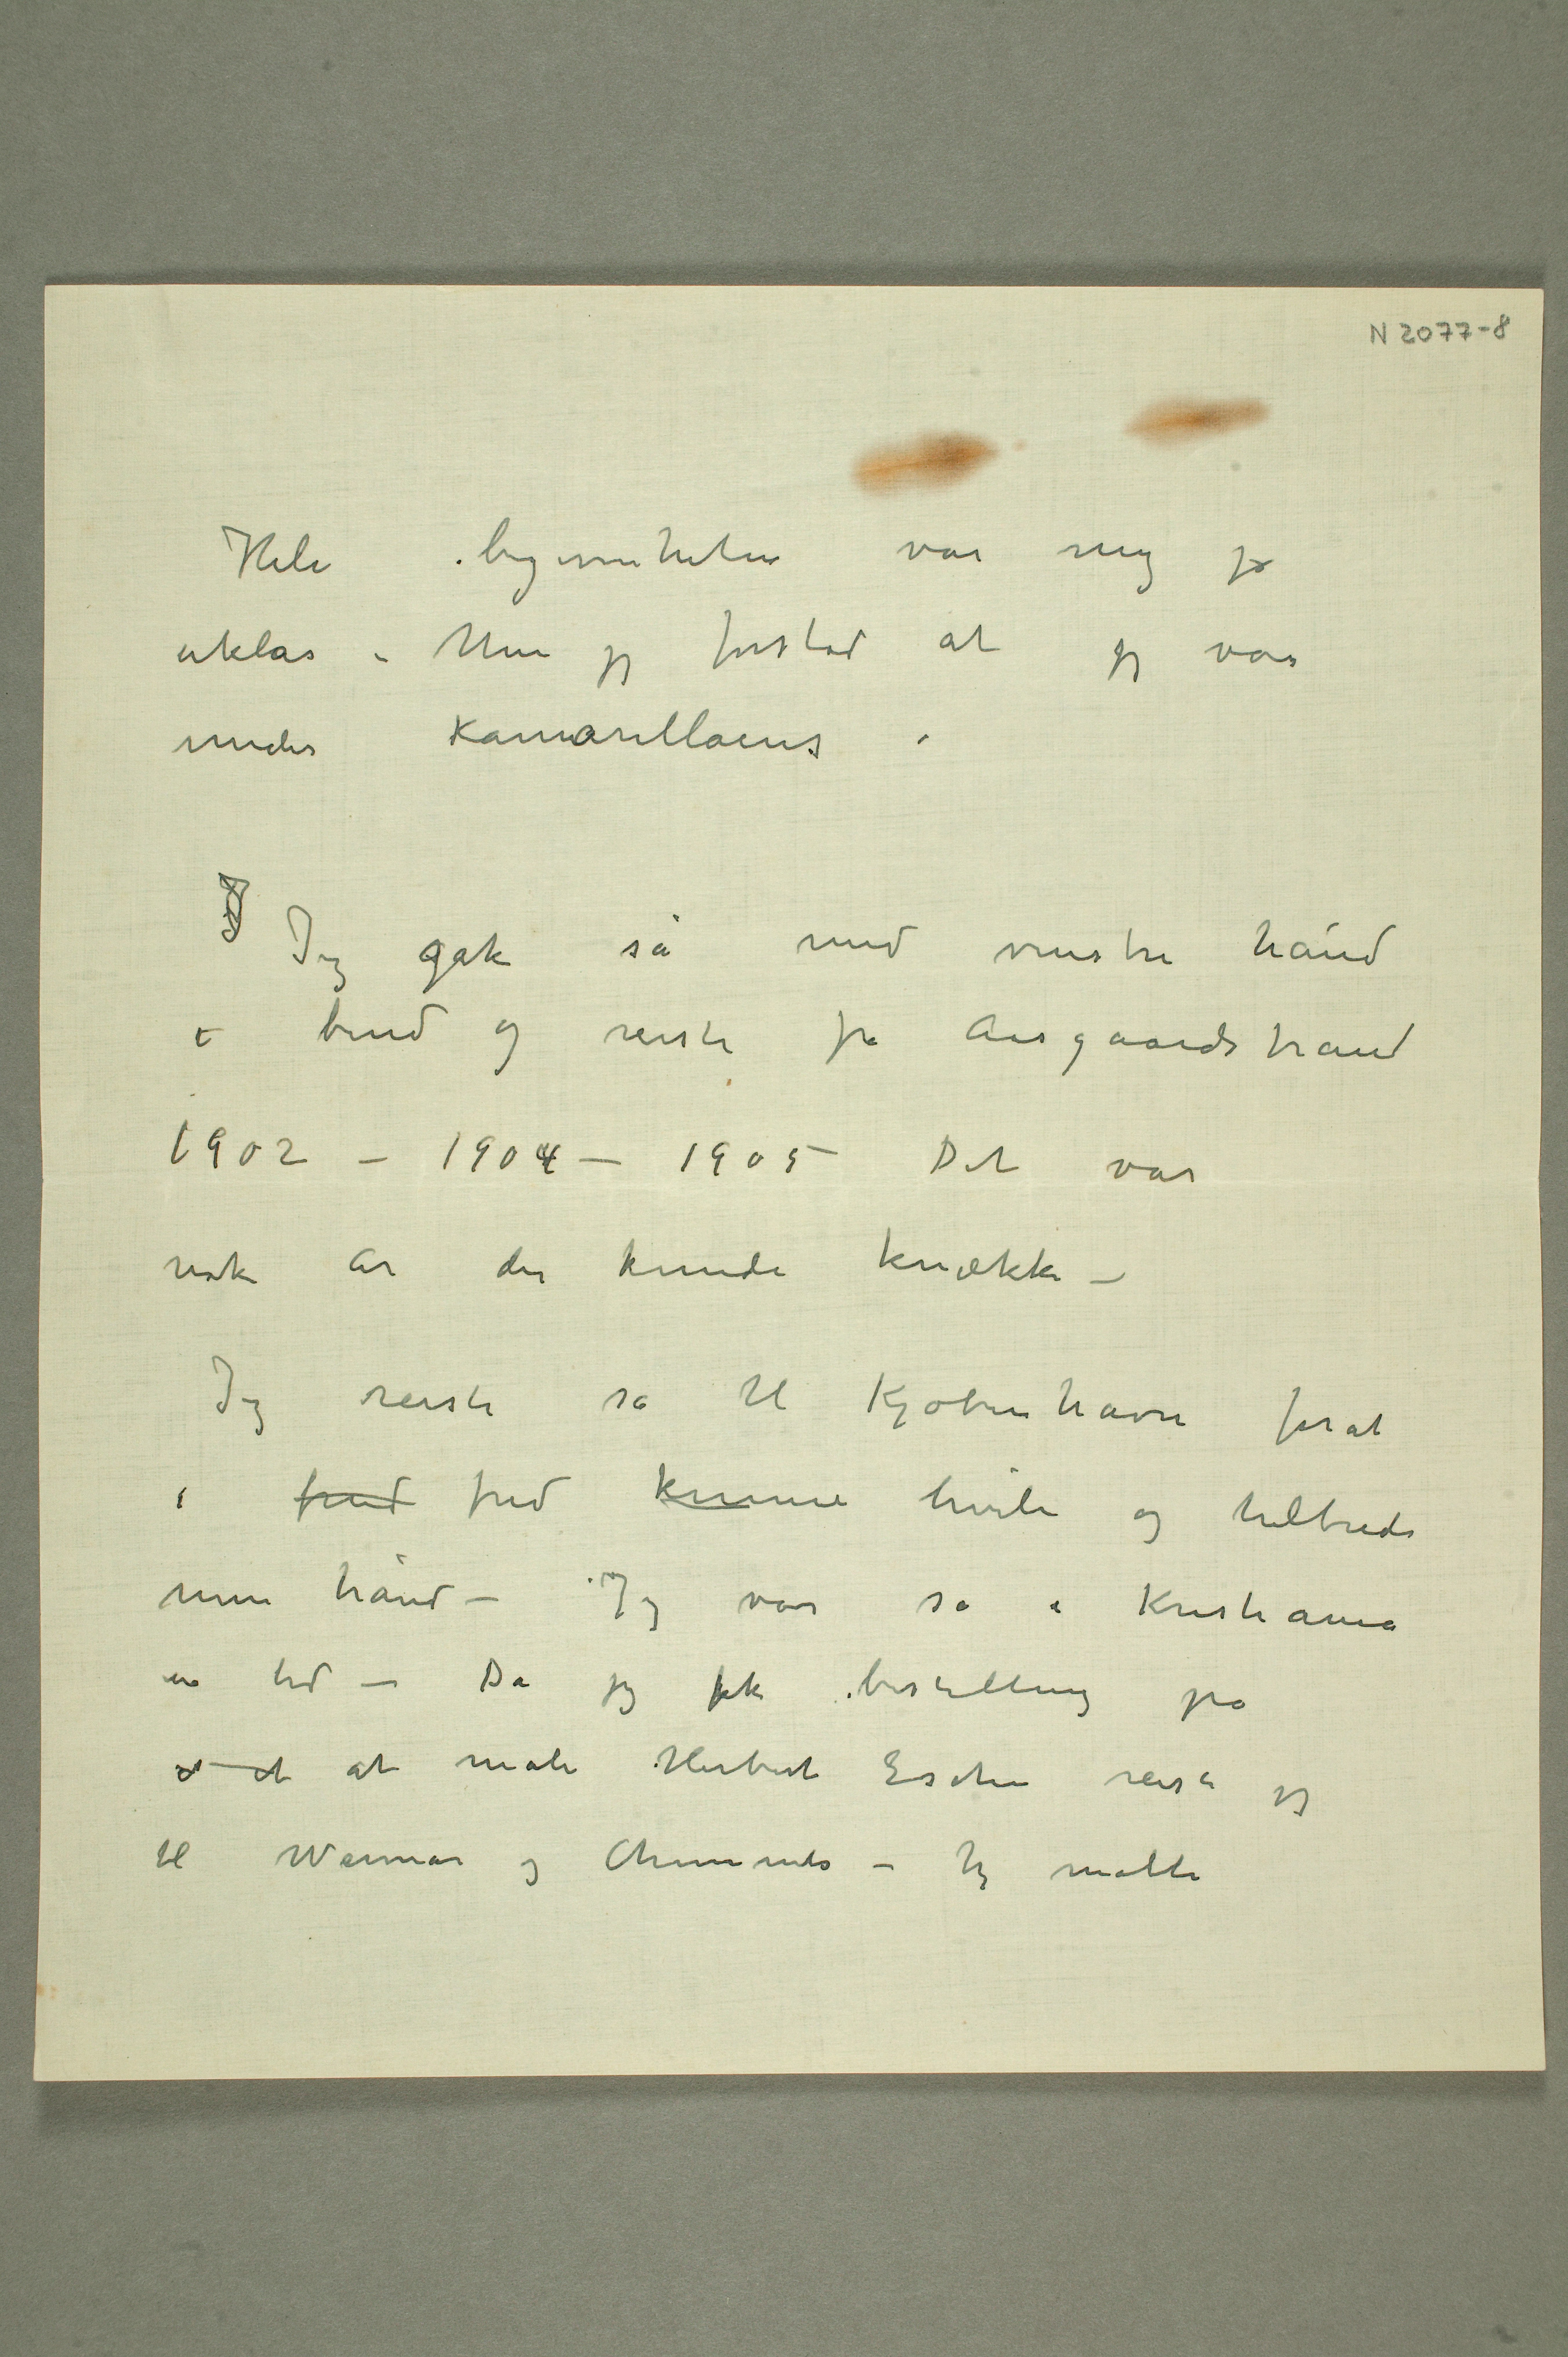 N 2077-8
Hele begivenheten var mig jo
uklar – Men jeg forstod at jeg var
under Kamarillaens .
Jeg gik så med venstre hånd
i bind og reiste fra Aasgaardstrand
1902 – 1904 – 1905 Det var
nok år der kunde knække –
Jeg reiste så til Kjøbenhavn forat
i fred fred kunne hvile og helbrede
min hånd – Jeg var så i Kristiania
en tid – Da jeg fik bestilling på
at male Herbert Esche reiste jeg
til Weimar og Chemnits – Jeg malte